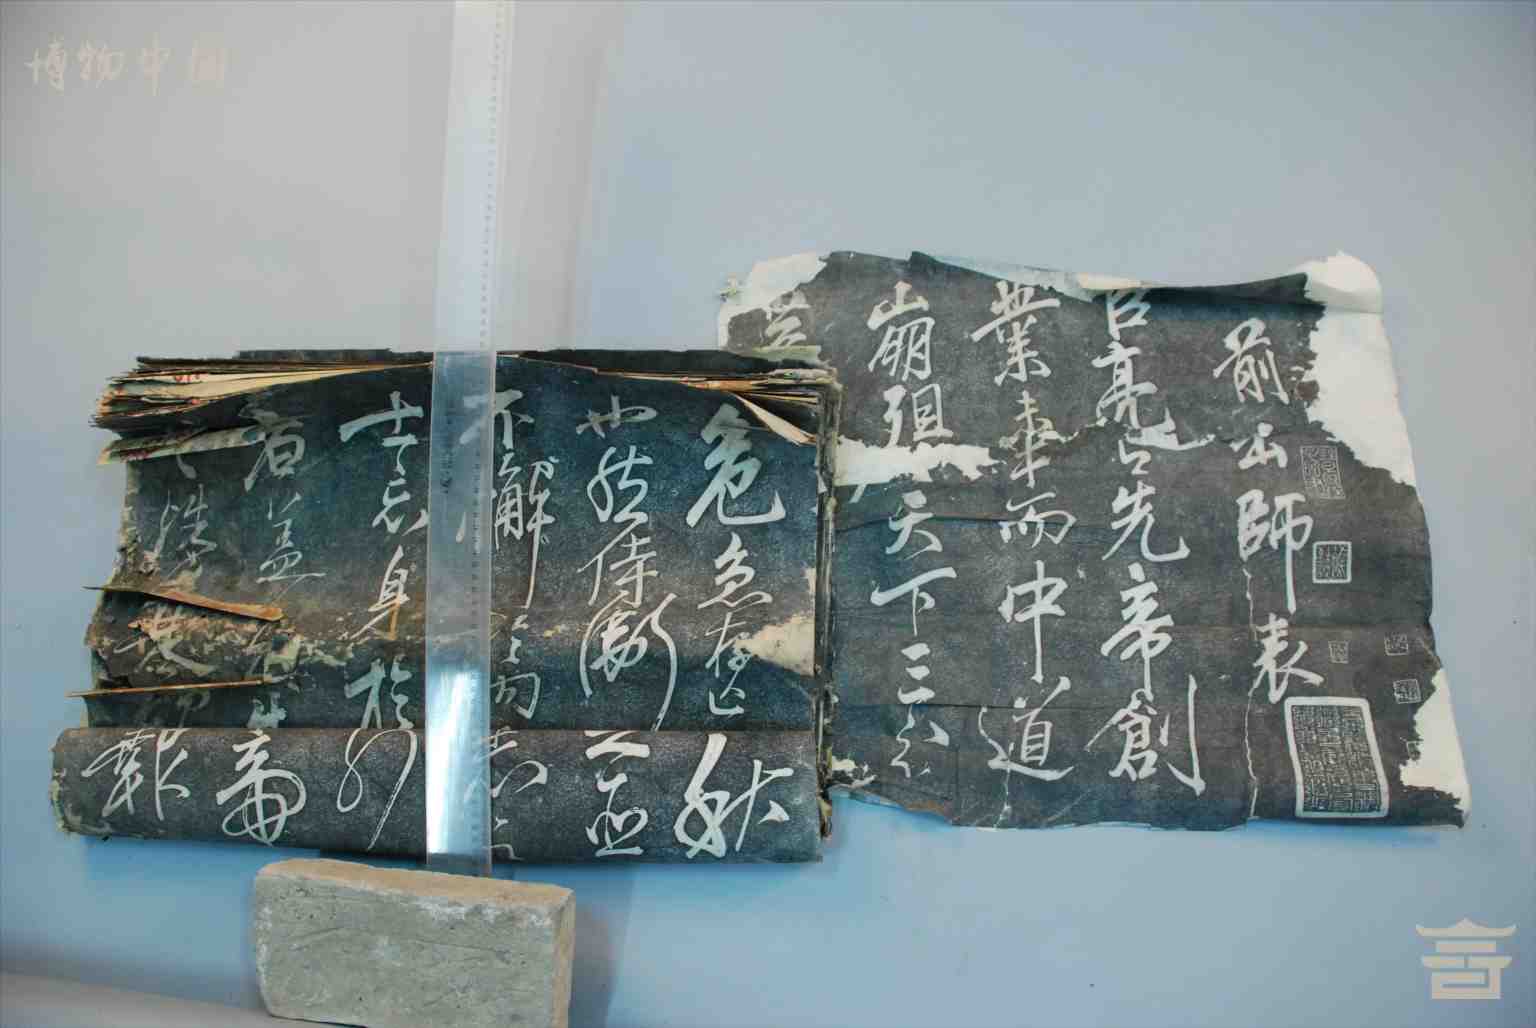 博物中国
前出師表
臣亮言先帝創
業未半而中道
崩殂今天下三分
危急存亡秋
也然侍衛臣
不懈於內忠
士忘身於外
者蓋追先帝
之殊遇欲報